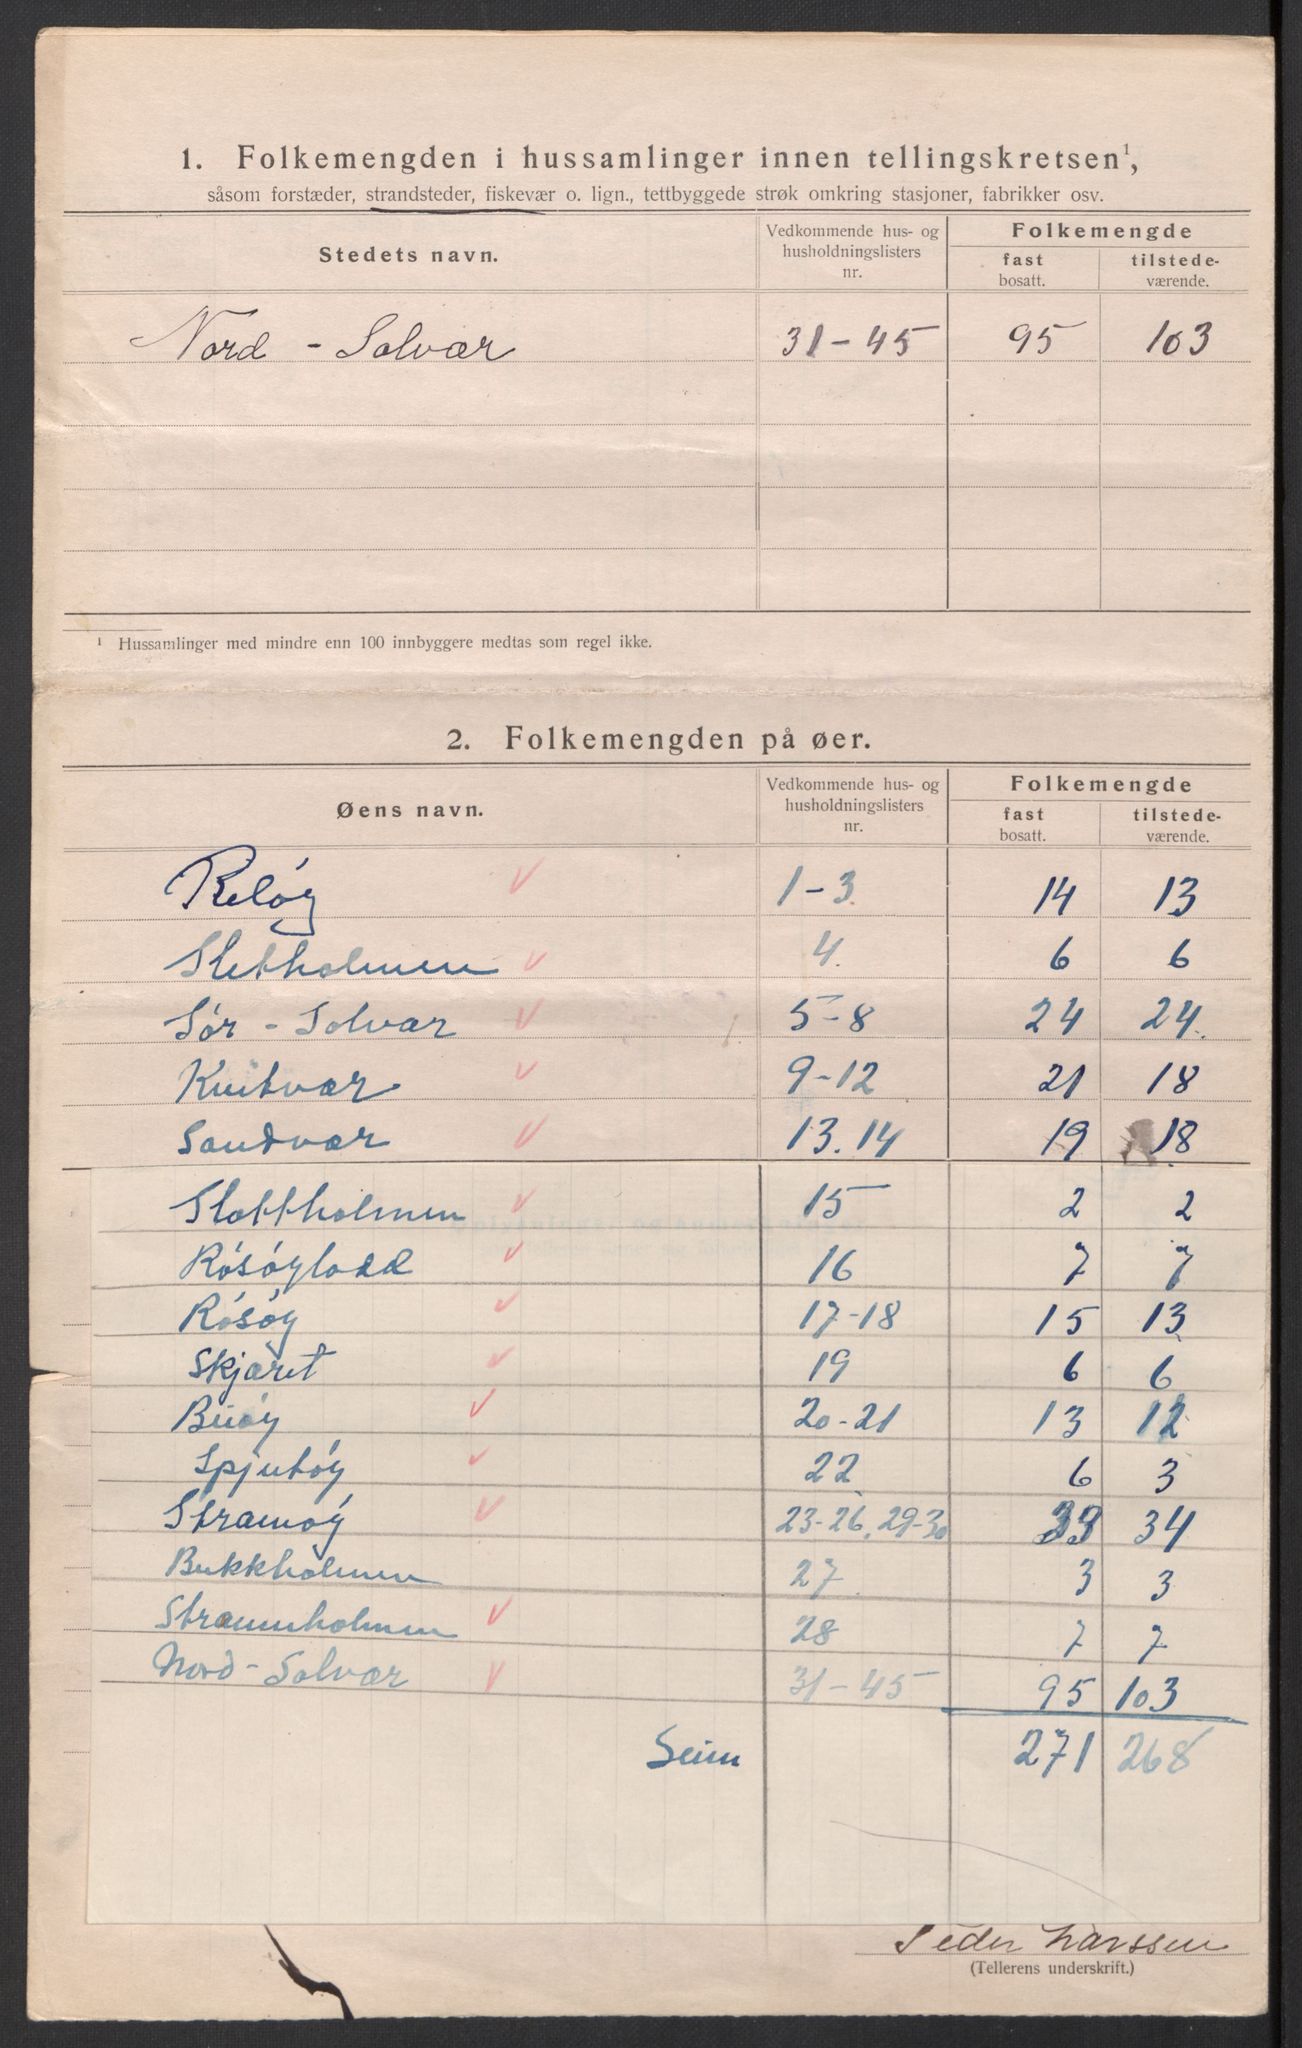 1. Folkemengden i hussamlinger innen tellingskretsen¹,
såsom forstæder, strandsteder, fiskevær o. lign., tettbyggede strøk omkring stasjoner, fabrikker osv.
Stedets navn. Vedkommende hus- og husholdningslisters nr. Folkemengde fast bosatt. tilstede-værende.
Nord - Solvær 31 - 45 95 103
¹ Hussamlinger med mindre enn 100 innbyggere medtas som regel ikke.
2. Folkemengden på øer.
Øens navn. Vedkommende hus- og husholdningslisters nr. Folkemengde fast bosatt. tilstede-værende.
Reløy 1 - 3. 14 13
Sletholmen 4. 6 6
Sør - Solvær 5 - 8 24 24.
Kvitvær 9 - 12 21 18
Sandvær 13. 14 19 18.
Slottholmen 15 2 2
Røsøylodd 16 7 7
Røsøy 17 - 18 15 13
Skjæret 19 6 6
Buøy 20 - 21 13 12
Spjutøy 22 6 3
Straumøy 23 - 26, 29 - 30 33 34
Bukkholmen 27 3 3
Straumholmen 28 7 7
Nord - Solvær 31 - 45 95 103
Seim 271 268
Peder Larssen
(Tellerens underskrift.)